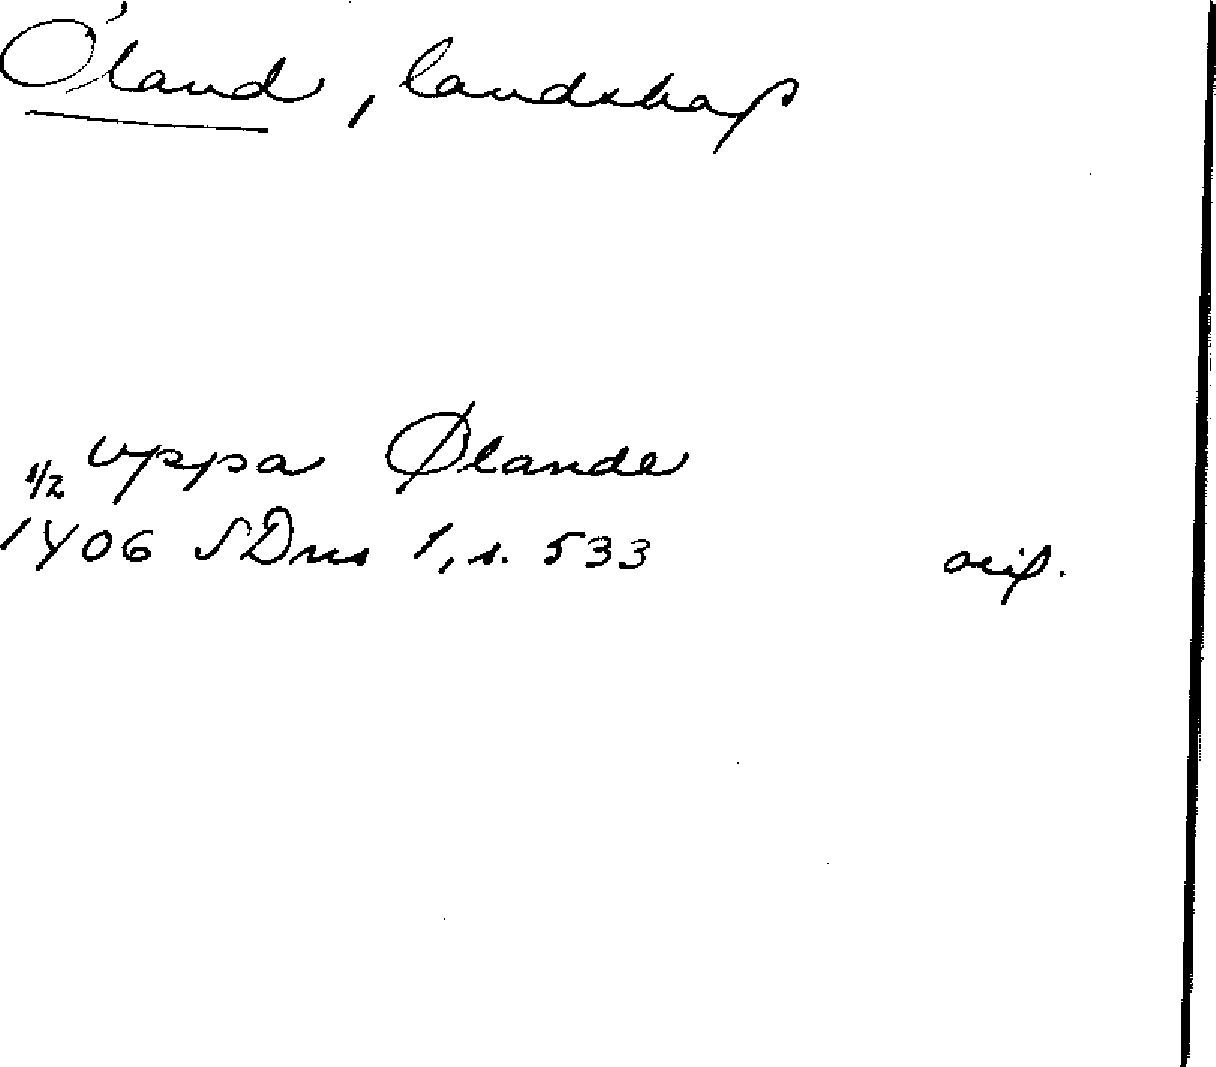 Öland, landskap
uppa Ølande
1/2
1406 SDns 1, s. 533 orig.